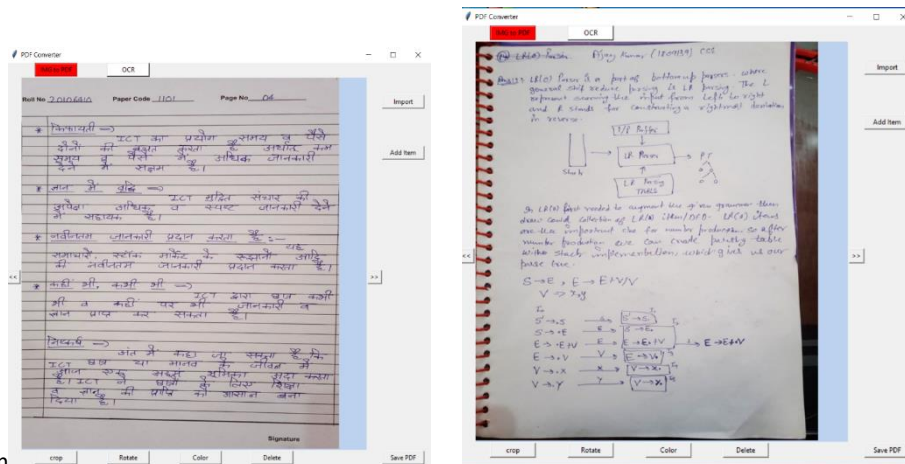 PDF Converter
IMG to PDF OCR
Roll No 20106410 Paper Code 1101 Page No 04
Import
Add Item
* किफायती →
ICT का प्रयोग समय व पैसे
दोनों की बचत करता है अर्थात कम
समय व पैसे में अधिक जानकारी
देने में सक्षम है।
* ज्ञान में वृद्धि →
ICT मुद्रित संचार की
अपेक्षा अधिक व स्पष्ट जानकारी देने
में सहायक है।
* नवीनतम जानकारी प्रदान करता है :-
यह
समाचारों, स्टॉक मार्केट के रुझानों आदि
की नवीनतम जानकारी प्रदान करता है।
* कहीं भी, कभी भी →
ICT द्वारा छात्र कभी
भी व कहीं पर भी जानकारी व
ज्ञान प्राप्त कर सकता है।
निष्कर्ष →
अंत में कहा जा सकता है कि
ICT छात्र या मानव के जीवन में
है। ICT ने छात्रों के लिए शिक्षा
व ज्ञान की प्राप्ति को आसान बना
दिया है।
Signature
<<
>>
crop Rotate Color Delete Save PDF
PDF Converter
IMG to PDF OCR
Import
Add Item
LR(0) Parser Ajay Kumar (1809139) CSE
LR(0) Parser is a part of bottom up parsers. where
general shift reduce parsing is LR parsing. The L
represent scanning the input from left to right
and R stands for constructing a rightmost derivation
in reverse.
I/P Buffer
Stack
LR Parser
P.T
LR Parsing
TABLE
In LR(0) first needed to augment the given grammar then
draw could collection of LR(0) item/DFA. LR(0) items
are the important one for number production so after
number production we can create parsing table
with stack implementation which gives us our
parse tree.
S→E, E→E+V/V
V→x,y
S'→.S
S→.E
E→.E+V
E→.V
V→.X
V→.Y
<<
>>
crop Rotate Color Delete Save PDF